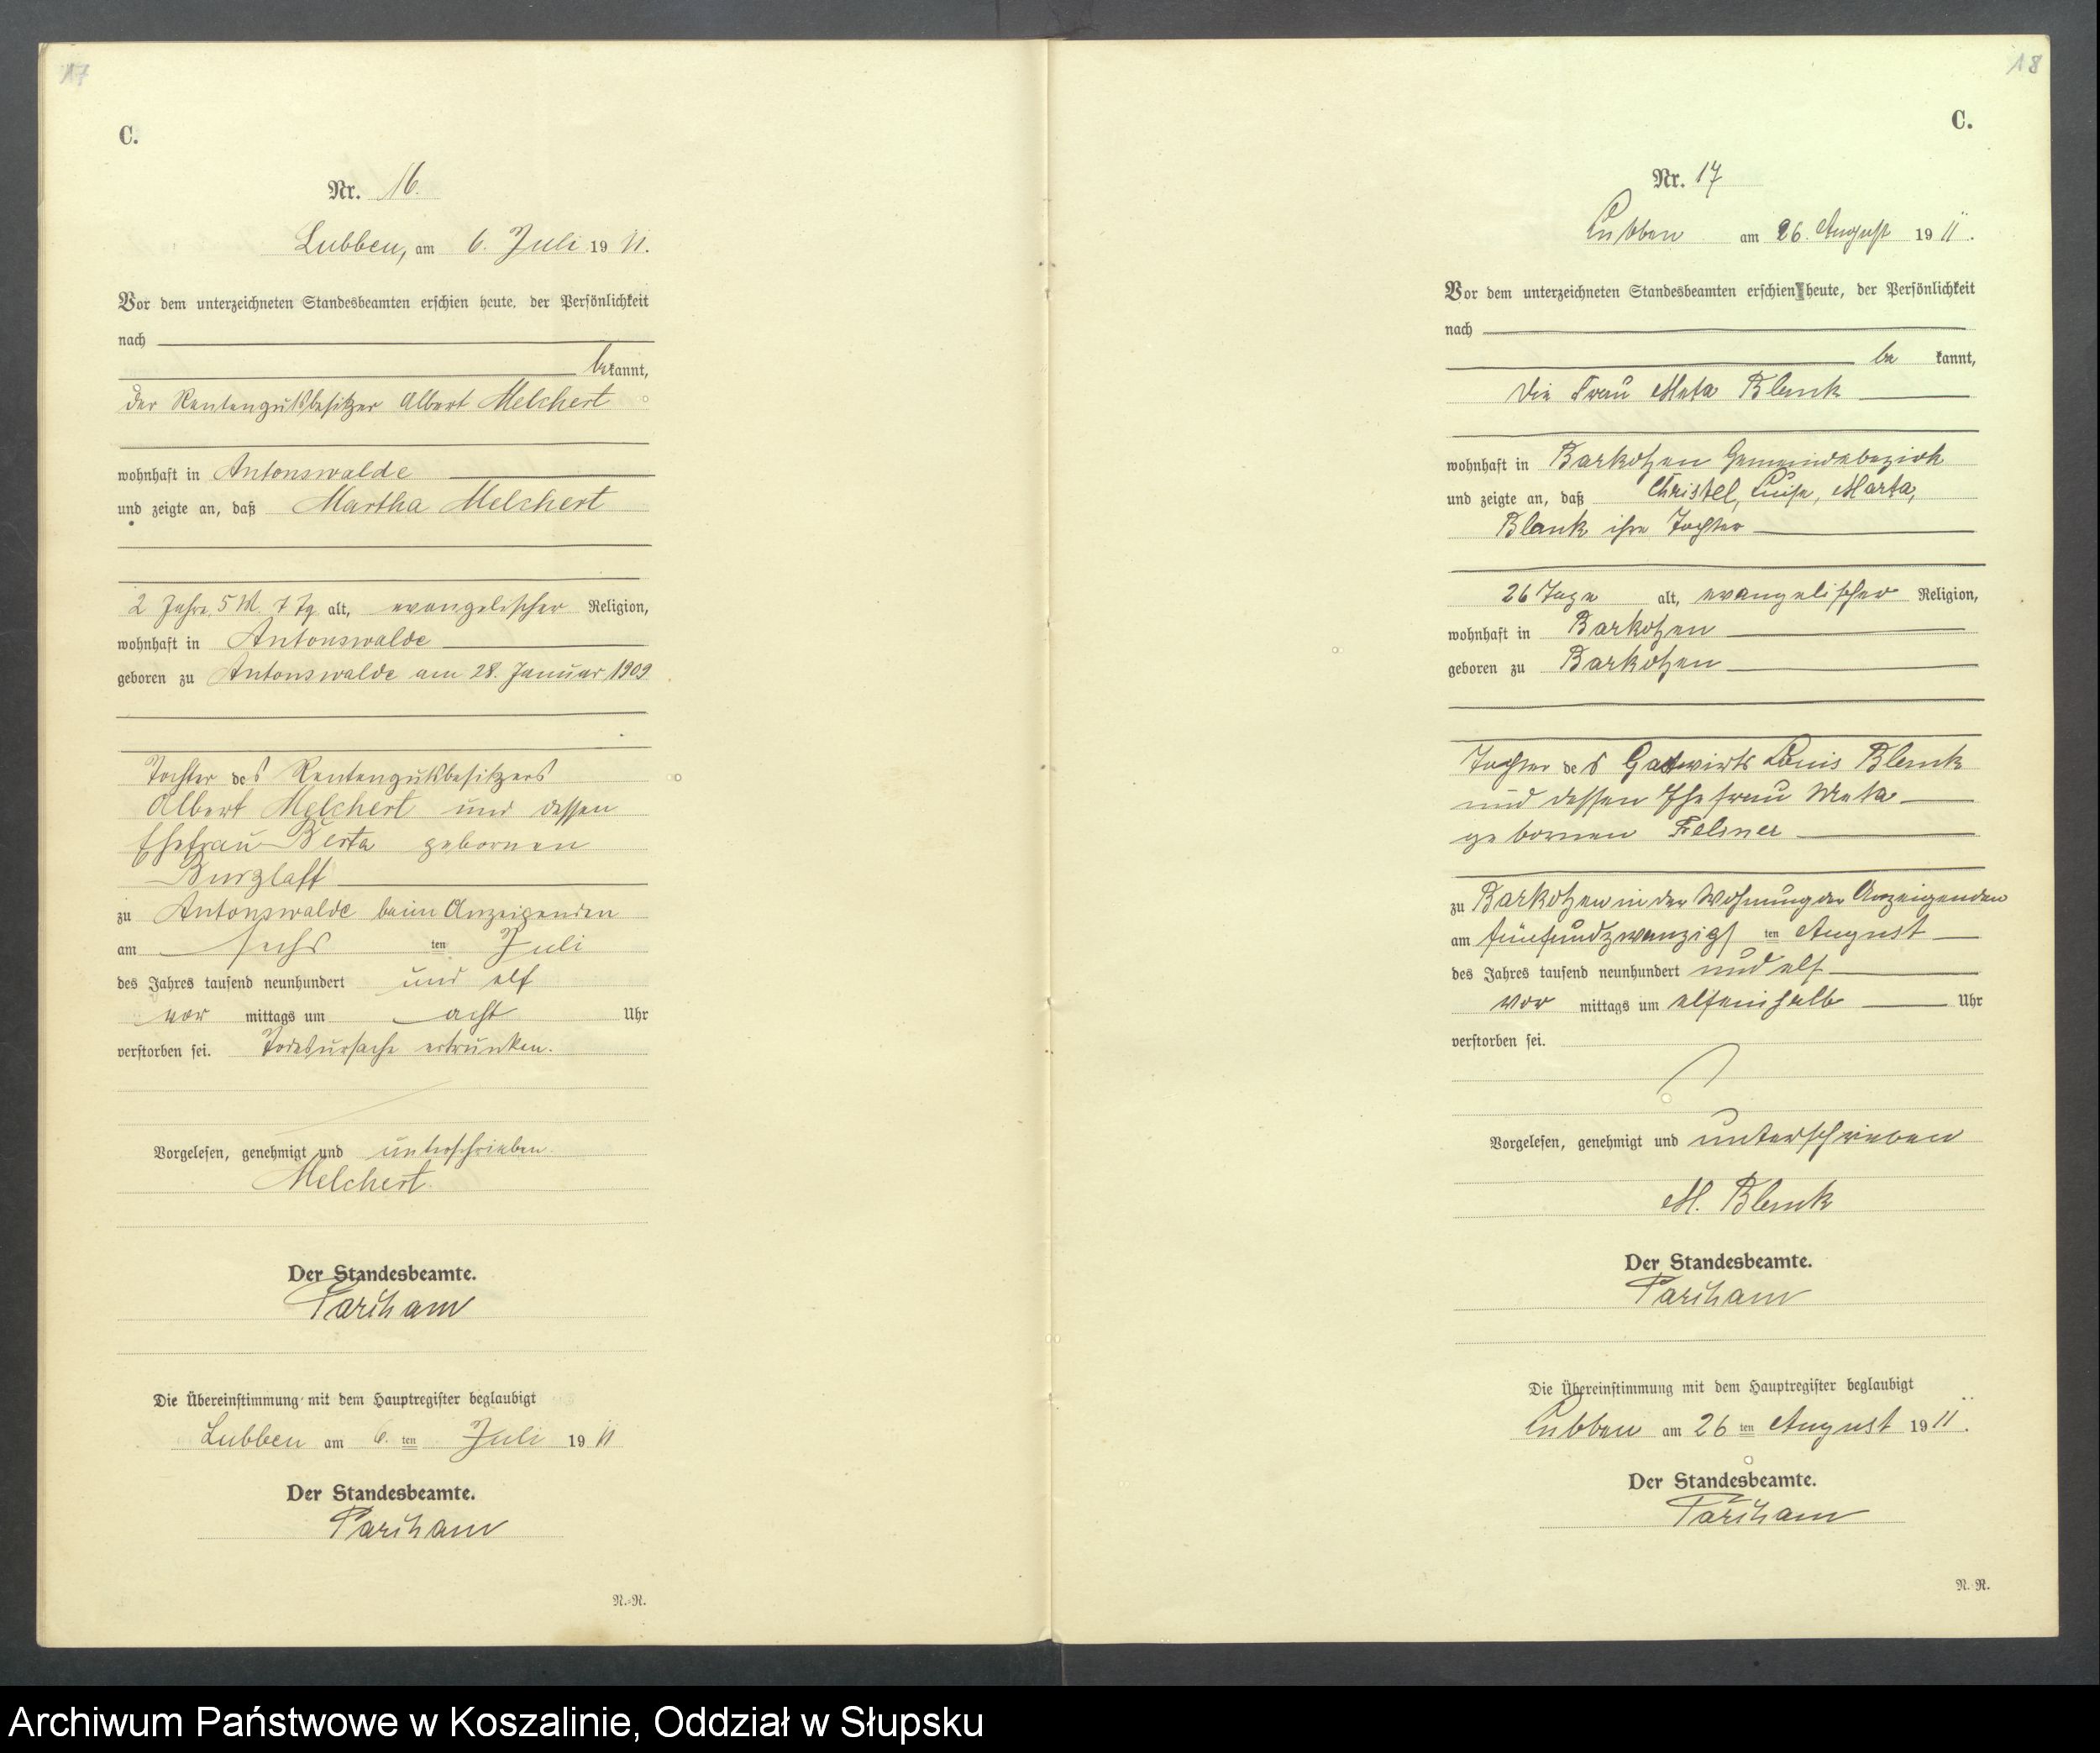 17
C.
Nr. 16.
Lubben, am 6. Juli 19 11.
Vor dem unterzeichneten Standesbeamten erschien heute, der Persönlichkeit
nach
bekannt,
der Rentengutsbesitzer Albert Melchert
wohnhaft in Antonswalde
und zeigte an, daß Martha Melchert
2 Jahre, 5 M. 7 Tg. alt, evangelischer Religion,
wohnhaft in Antonswalde
geboren zu Antonswalde am 28. Januar 1909
Tochter des Rentengutsbesitzers
Albert Melchert und dessen
Ehefrau Berta gebornen
Burzlaff
zu Antonswalde beim Anzeigenden
am sechs ten Juli
des Jahres tausend neunhundert und elf
vor mittags um acht Uhr
verstorben sei. Todesursache ertrunken.
Vorgelesen, genehmigt und unterschrieben.
Melchert.
Der Standesbeamte.
Die Übereinstimmung mit dem Hauptregister beglaubigt
Lubben am 6. ten Juli 19 11
Der Standesbeamte.
N.-N.
18
C.
Nr. 17
Lubben am 26. August 19 11.
Vor dem unterzeichneten Standesbeamten erschien heute, der Persönlichkeit
nach
be kannt,
die Frau Meta Blank
wohnhaft in Barkotzen Gemeindebezirk
und zeigte an, daß Christel, Luise, Marta,
Blank ihre Tochter
26 Tage alt, evangelischer Religion,
wohnhaft in Barkotzen
geboren zu Barkotzen
Tochter des Gastwirts Louis Blank
und dessen Ehefrau Meta
gebornen Felsner
zu Barkotzen in der Wohnung der Anzeigenden
am fünfundzwanzigs ten August
des Jahres tausend neunhundert und elf
vor mittags um elfeinhalb Uhr
verstorben sei.
Vorgelesen, genehmigt und unterschrieben
M. Blank
Der Standesbeamte.
Die Übereinstimmung mit dem Hauptregister beglaubigt
Lubben am 26 ten August 19 11.
Der Standesbeamte.
N. N.
Archiwum Państwowe w Koszalinie, Oddział w Słupsku